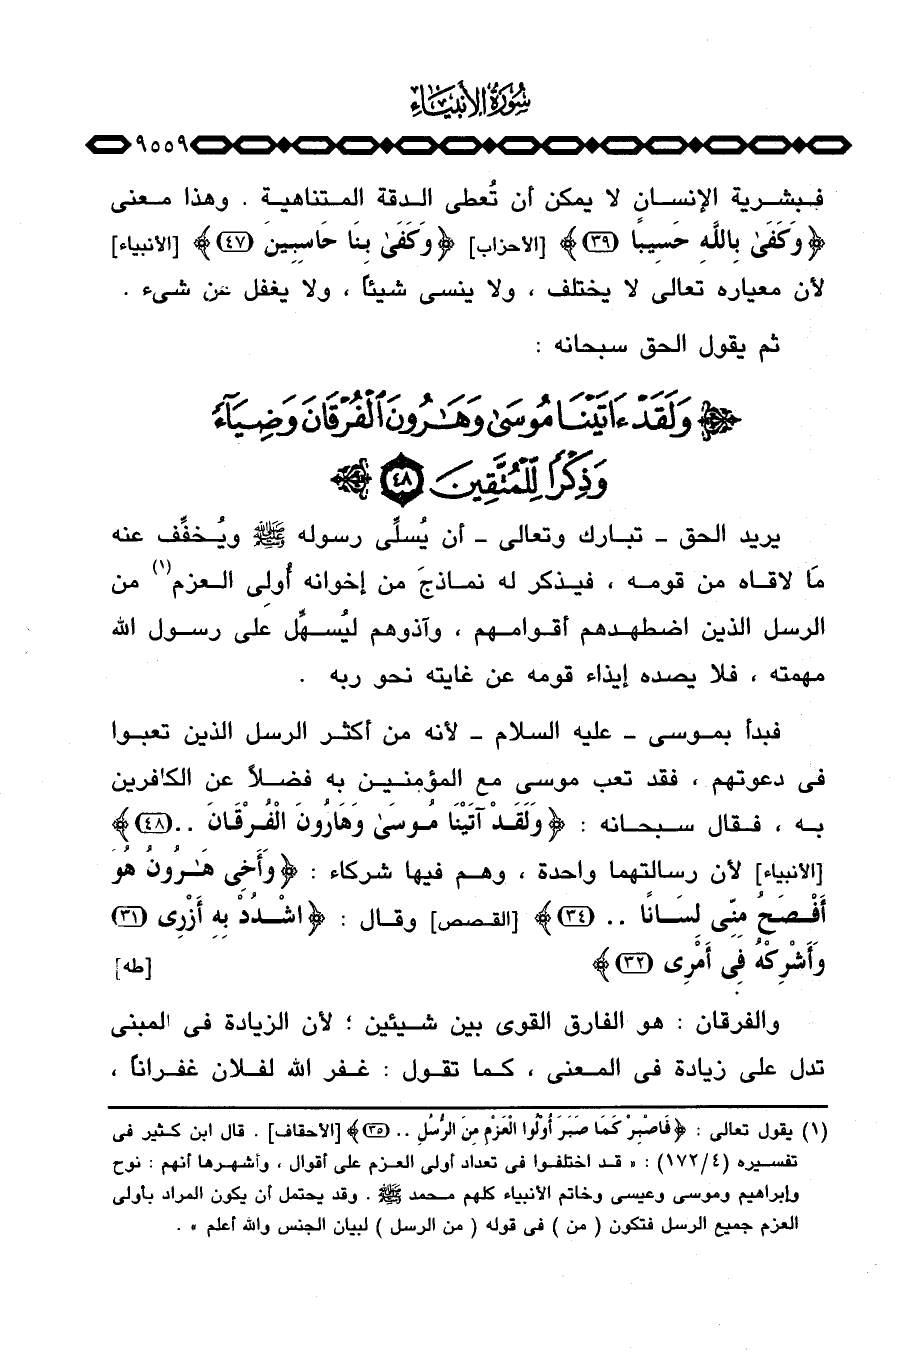 سورة الأنبياء
٩٥٥٩
فبشرية الإنسان لا يمكن أن تُعطى الدقة المتناهية . وهذا معنى
﴿وَكَفَىٰ بِاللَّهِ حَسِيبًا (٣٩)﴾ [الأحزاب] ﴿وَكَفَىٰ بِنَا حَاسِبِينَ (٤٧)﴾ [الأنبياء]
لأن معياره تعالى لا يختلف ، ولا ينسى شيئاً ، ولا يغفل عن شىء .
ثم يقول الحق سبحانه :
﴿وَلَقَدْ ءَاتَيْنَا مُوسَىٰ وَهَٰرُونَ ٱلْفُرْقَانَ وَضِيَآءً
وَذِكْرًا لِّلْمُتَّقِينَ ٤٨﴾
يريد الحق - تبارك وتعالى - أن يُسلِّى رسوله ﷺ ويُخفِّف عنه
مَا لاقاه من قومه ، فيذكر له نماذجَ من إخوانه أُولى العزم(١) من
الرسل الذين اضطهدهم أقوامهم ، وآذوهم ليُسهِّل على رسول الله
مهمته ، فلا يصده إيذاء قومه عن غايته نحو ربه .
فبدأ بموسى - عليه السلام - لأنه من أكثر الرسل الذين تعبوا
فى دعوتهم ، فقد تعب موسى مع المؤمنين به فضلاً عن الكافرين
به ، فقال سبحانه : ﴿وَلَقَدْ آتَيْنَا مُوسَىٰ وَهَارُونَ الْفُرْقَانَ ..(٤٨)﴾
[الأنبياء] لأن رسالتهما واحدة ، وهم فيها شركاء : ﴿وَأَخِى هَٰرُونُ هُوَ
أَفْصَحُ مِنِّى لِسَانًا .. (٣٤)﴾ [القصص] وقال : ﴿اشْدُدْ بِهِ أَزْرِى (٣١)
وَأَشْرِكْهُ فِى أَمْرِى (٣٢)﴾ [طه]
والفرقان : هو الفارق القوى بين شيئين ؛ لأن الزيادة فى المبنى
تدل على زيادة فى المعنى ، كما تقول : غفر الله لفلان غفراناً ،
(١) يقول تعالى : ﴿فَاصْبِرْ كَمَا صَبَرَ أُولُوا الْعَزْمِ مِنَ الرُّسُلِ .. (٣٥)﴾ [الأحقاف] . قال ابن كثير فى
تفسيره (١٧٢/٤) : « قد اختلفوا فى تعداد أولى العزم على أقوال ، وأشهرها أنهم : نوح
وإبراهيم وموسى وعيسى وخاتم الأنبياء كلهم محمد ﷺ . وقد يحتمل أن يكون المراد بأولى
العزم جميع الرسل فتكون ( من ) فى قوله ( من الرسل ) لبيان الجنس والله أعلم » .